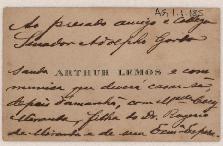 AG.1.1.185
Ao presado amigo e collega
Senador Adolpho Gordo
Sauda ARTHUR LEMOS e com-
munica que deverá casar-se,
depois d'amanhã, com Mlle
Miranda, filha do Dr. Rogerio
de Miranda e de sua Exma.